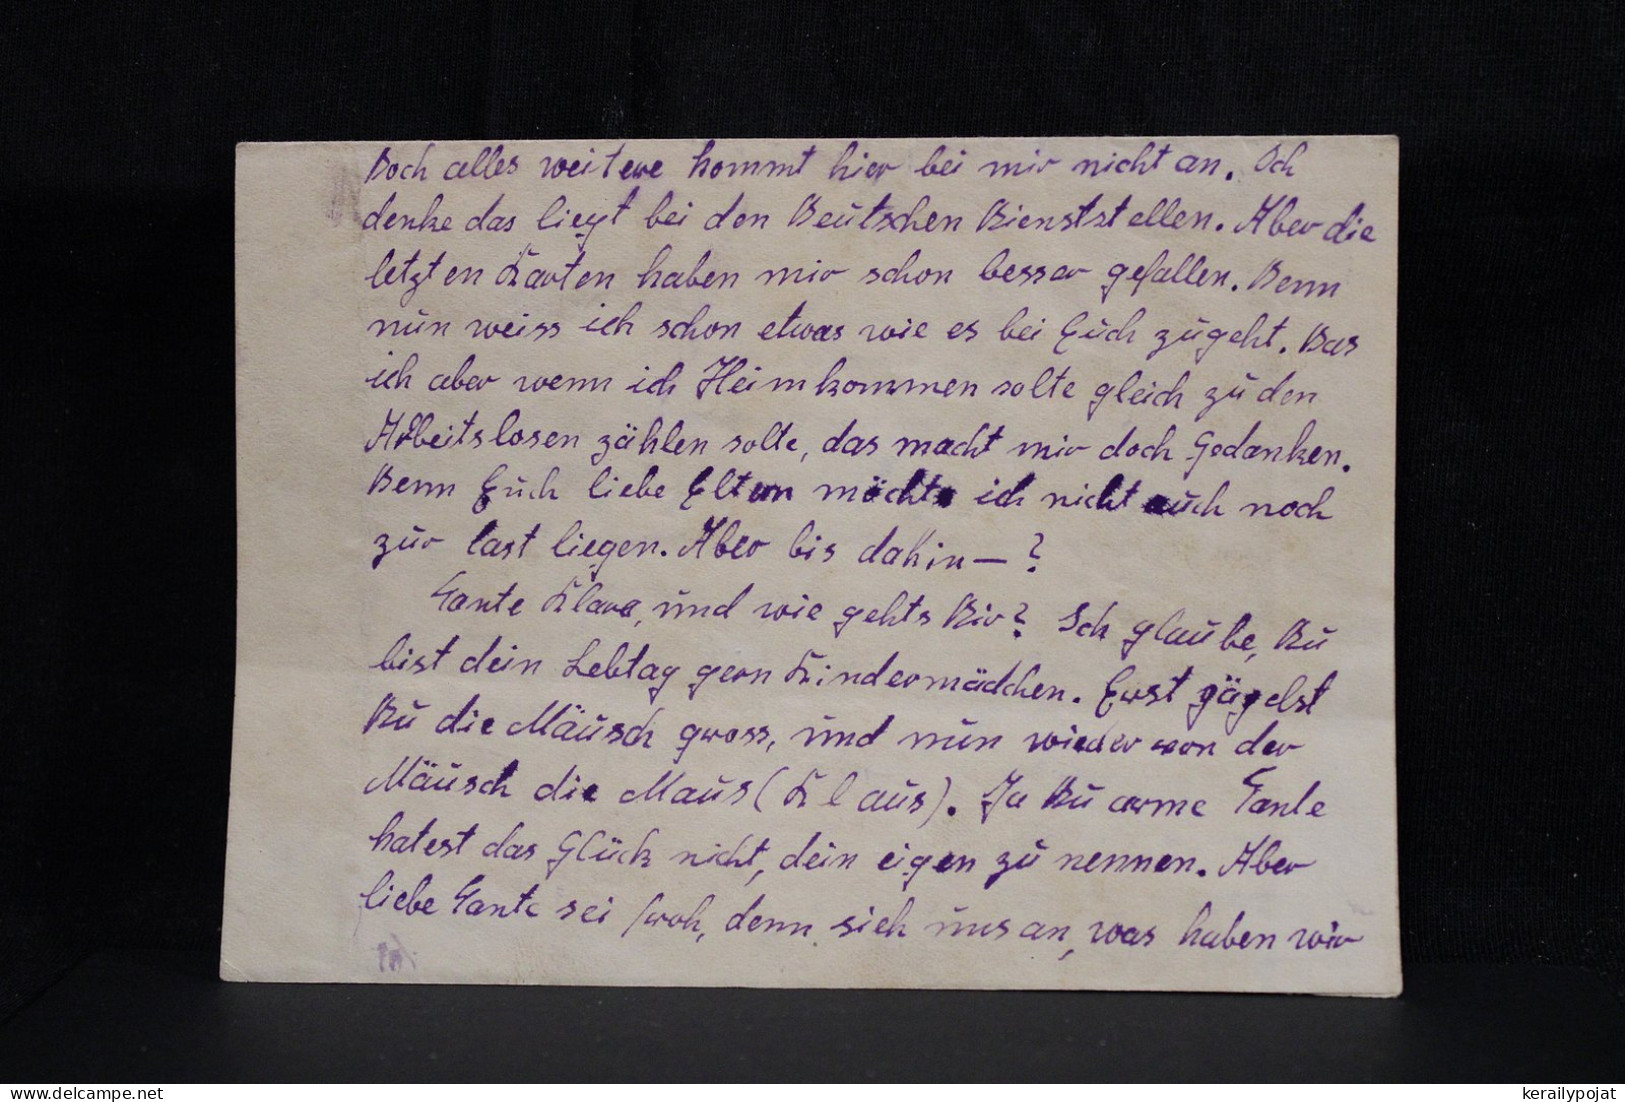 Doch alles weitere kommt hier bei mir nicht an. Ich
denke das liegt bei den Deutschen Dienststellen. Aber die
letzten Karten haben mir schon besser gefallen. Denn
nun weiss ich schon etwas wie es bei Euch zugeht. Das
ich aber wenn ich Heimkommen solte gleich zu den
Arbeitslosen zählen solte, das macht mir doch Gedanken.
Denn Euch liebe Eltern möchte ich nicht auch noch
zur last liegen. Aber bis dahin — ?
Tante Klara, und wie gehts Dir? Ich glaube, Du
bist dein Lebtag gern Kindermädchen. Erst
Du die Mäusch gross, und nun wieder von der
Mäusch die Maus (Klaus). Ja Du arme Tante
hatest das Glück nicht, dein eigen zu nennen. Aber
liebe Tante sei froh, denn sieh uns an, was haben wir
kerailypojat
delcampe.net